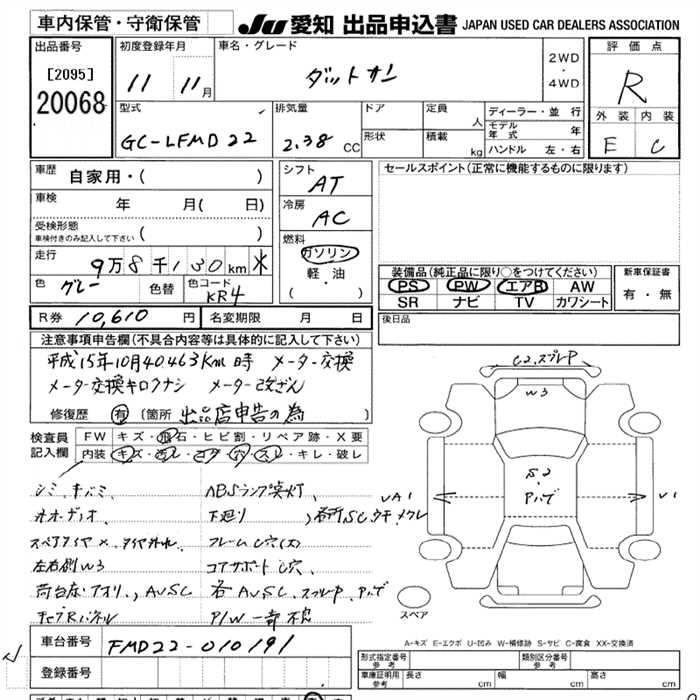 車内保管・守衛保管
JU 愛知 出品申込書 JAPAN USED CAR DEALERS ASSOCIATION
出品番号
[2095]
20068
初度登録年月
11 11月
車名・グレード
ダットサン
2WD
・
4WD
評価点
R
外装 内装
E C
型式
GC-LFMD22
排気量
2.38 CC
ドア
形状
定員 人
積載 kg
ディーラー・並行
モデル年式 年
ハンドル 左・右
車歴 自家用・( )
車検 年 月( 日)
受検形態
車検付きのみ記入して下さい ( )
走行
9万8千130km
色 グレー
色替
色コード
KR4
シフト
AT
冷房
AC
燃料
ガソリン
軽・油
( )
セールスポイント(正常に機能するものに限ります)
装備品(純正品に限り○をつけてください)
PS PW エアB AW
SR ナビ TV カワシート
新車保証書
有・無
R券 10,610 円
名変期限 月 日
後日品
注意事項申告欄(不具合内容等は具体的に記入して下さい)
平成15年10月40463Km時 メーター交換
メーター交換キロクナシ メーター改ざん
修復歴 有 (箇所 出品店申告の為 )
検査員記入欄
FW キズ・飛石・ヒビ割・リペア跡・X要
内装 キズ・汚レ・コゲ・穴・スレ・キレ・破レ
シミ、キバミ ABSランプ実灯、
オーディオ 下廻り
スペアタイヤ×、タイヤ外れ フレームC穴(大)
左右右側W3 コアサポートC穴
荷台床アオリ、AVSC 各AVSC、スプレーP、Pハゲ
P/W一部不良
C2、スプレーP
W3
S2
Pハゲ
UA1
U1
スペア
A-キズ E-エクボ U-凹み W-補修跡 S-サビ C-腐食 XX-交換済
車台番号 FMD22-010191
登録番号
型式指定番号
参考
類別区分番号
参考
車庫証明用
参考
長さ cm
幅 cm
高さ cm